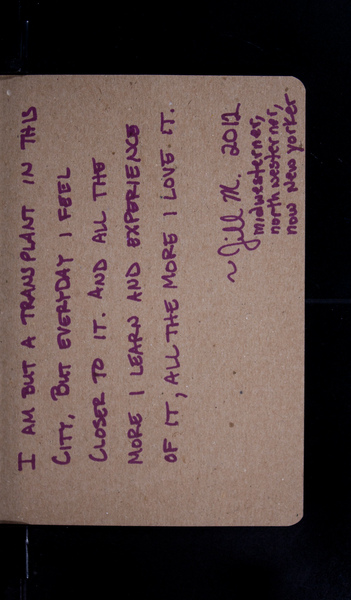 I AM BUT A TRANSPLANT IN THIS
CITY, BUT EVERYDAY I FEEL
CLOSER TO IT. AND ALL THE
MORE I LEARN AND EXPERIENCE
OF IT, ALL THE MORE I LOVE IT.
~ Jill M. 2012
midwesterner,
northwesterner,
now New Yorker